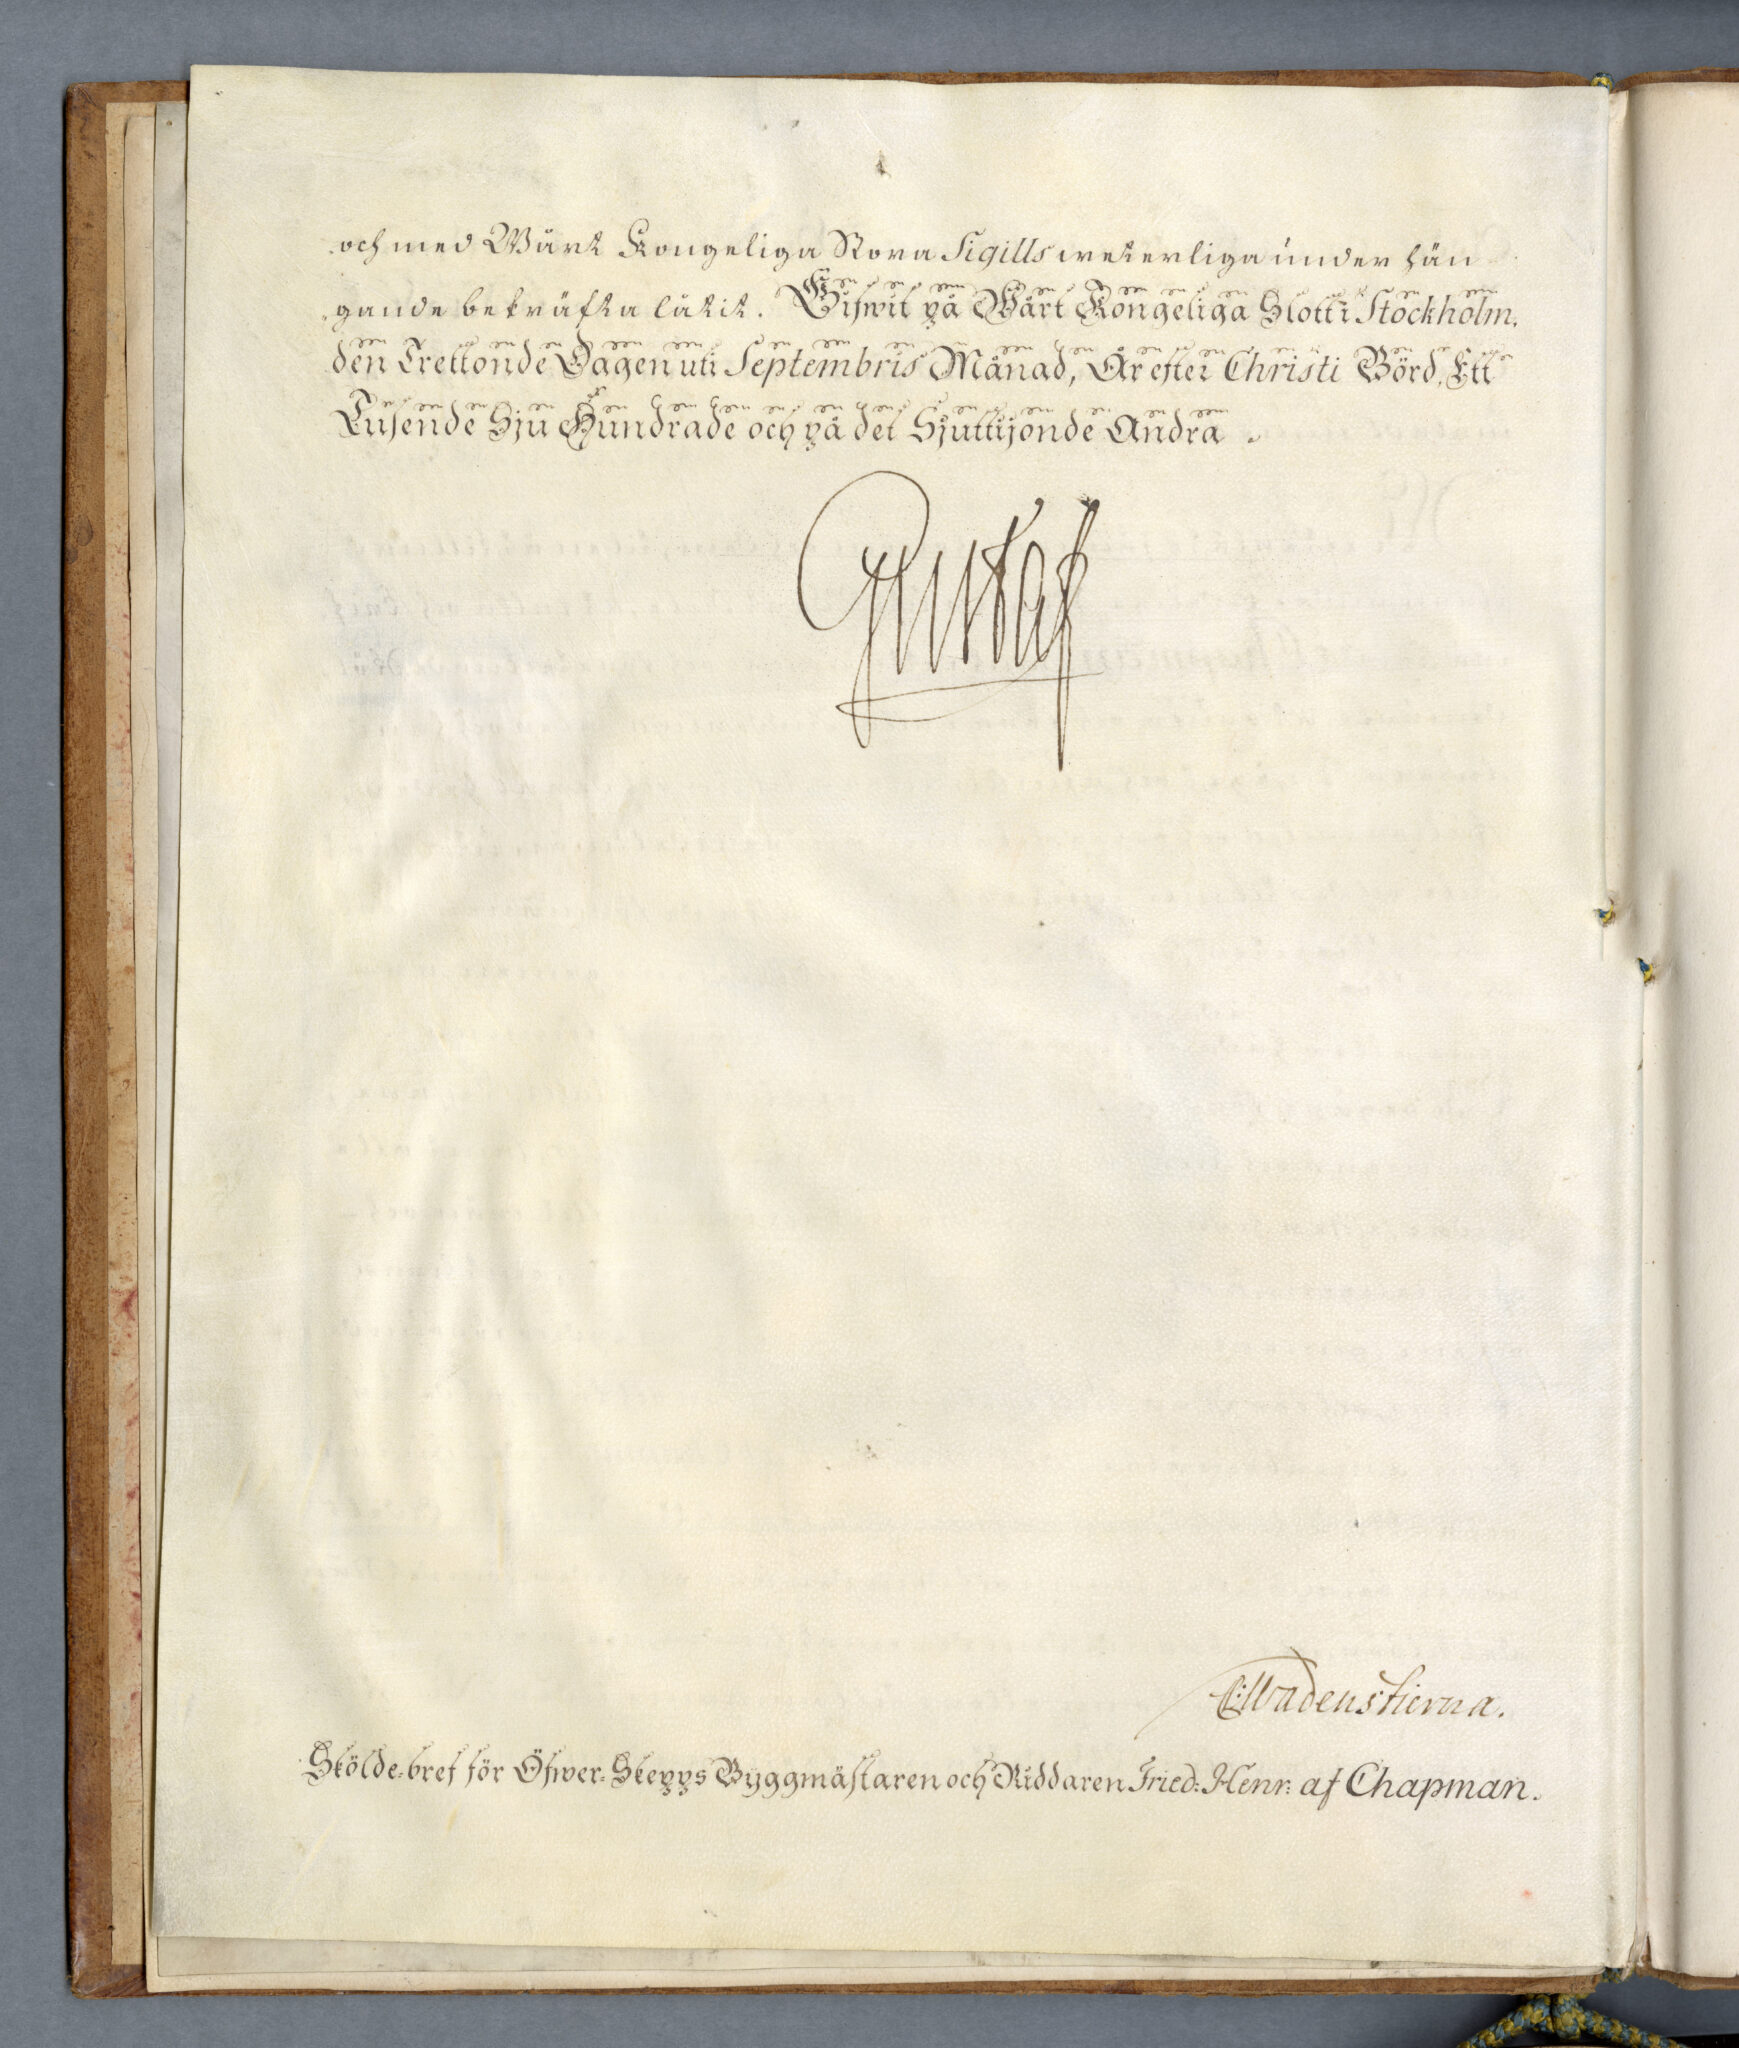 och med Wårt Kongeliga Stora Sigills wetterliga under hän
gande bekräfta låtit. Gifwit på Wårt Kongeliga Slott i Stockholm,
den Trettonde Dagen uti Septembris Månad, År efter Christi Börd, Ett
Tusende Sju Hundrade och på det Sjuttijonde Andra.
Gustaf
C: Wadenstierna.
Skölde-bref för Öfwer-Skepps Byggmästaren och Riddaren Fried: Henr: af Chapman.